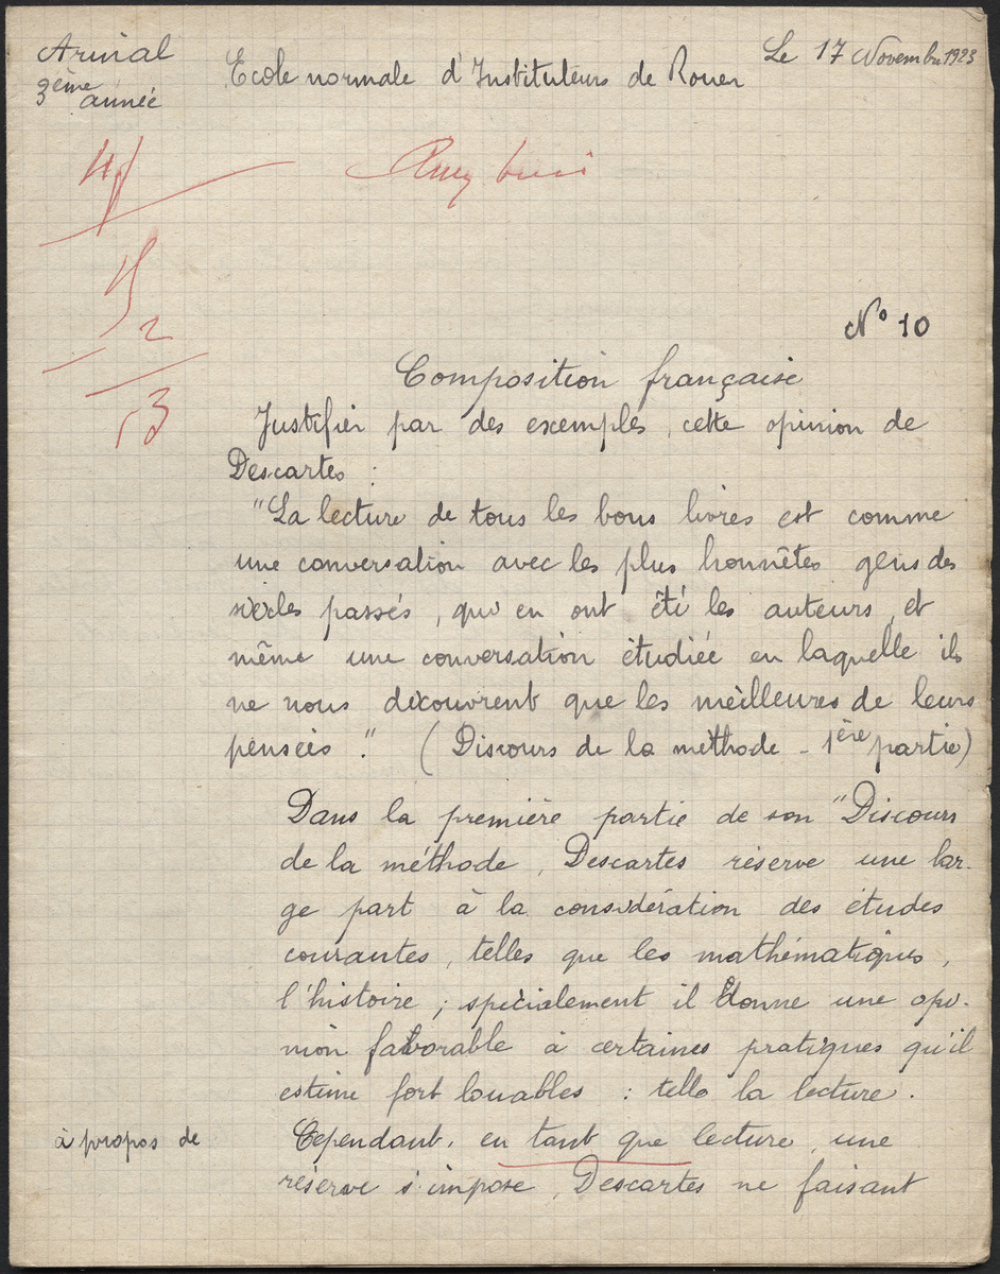 Arinal
3ème année
Ecole normale d'Instituteurs de Rouen
Le 17 Novembre 1923
Assez bien
15
2
13
N° 10
Composition française
Justifier par des exemples, cette opinion de
Descartes :
"La lecture de tous les bons livres est comme
une conversation avec les plus honnêtes gens des
siècles passés, qui en ont été les auteurs, et
même une conversation étudiée en laquelle ils
ne nous découvrent que les meilleures de leurs
pensées." (Discours de la méthode - 1ère partie)
Dans la première partie de son "Discours
de la méthode, Descartes réserve une lar-
ge part à la considération des études
courantes, telles que les mathématiques,
l'histoire ; spécialement il donne une opi-
nion favorable à certaines pratiques qu'il
estime fort louables : telle la lecture.
à propos de
Cependant, en tant que lecture, une
réserve s'impose, Descartes ne faisant